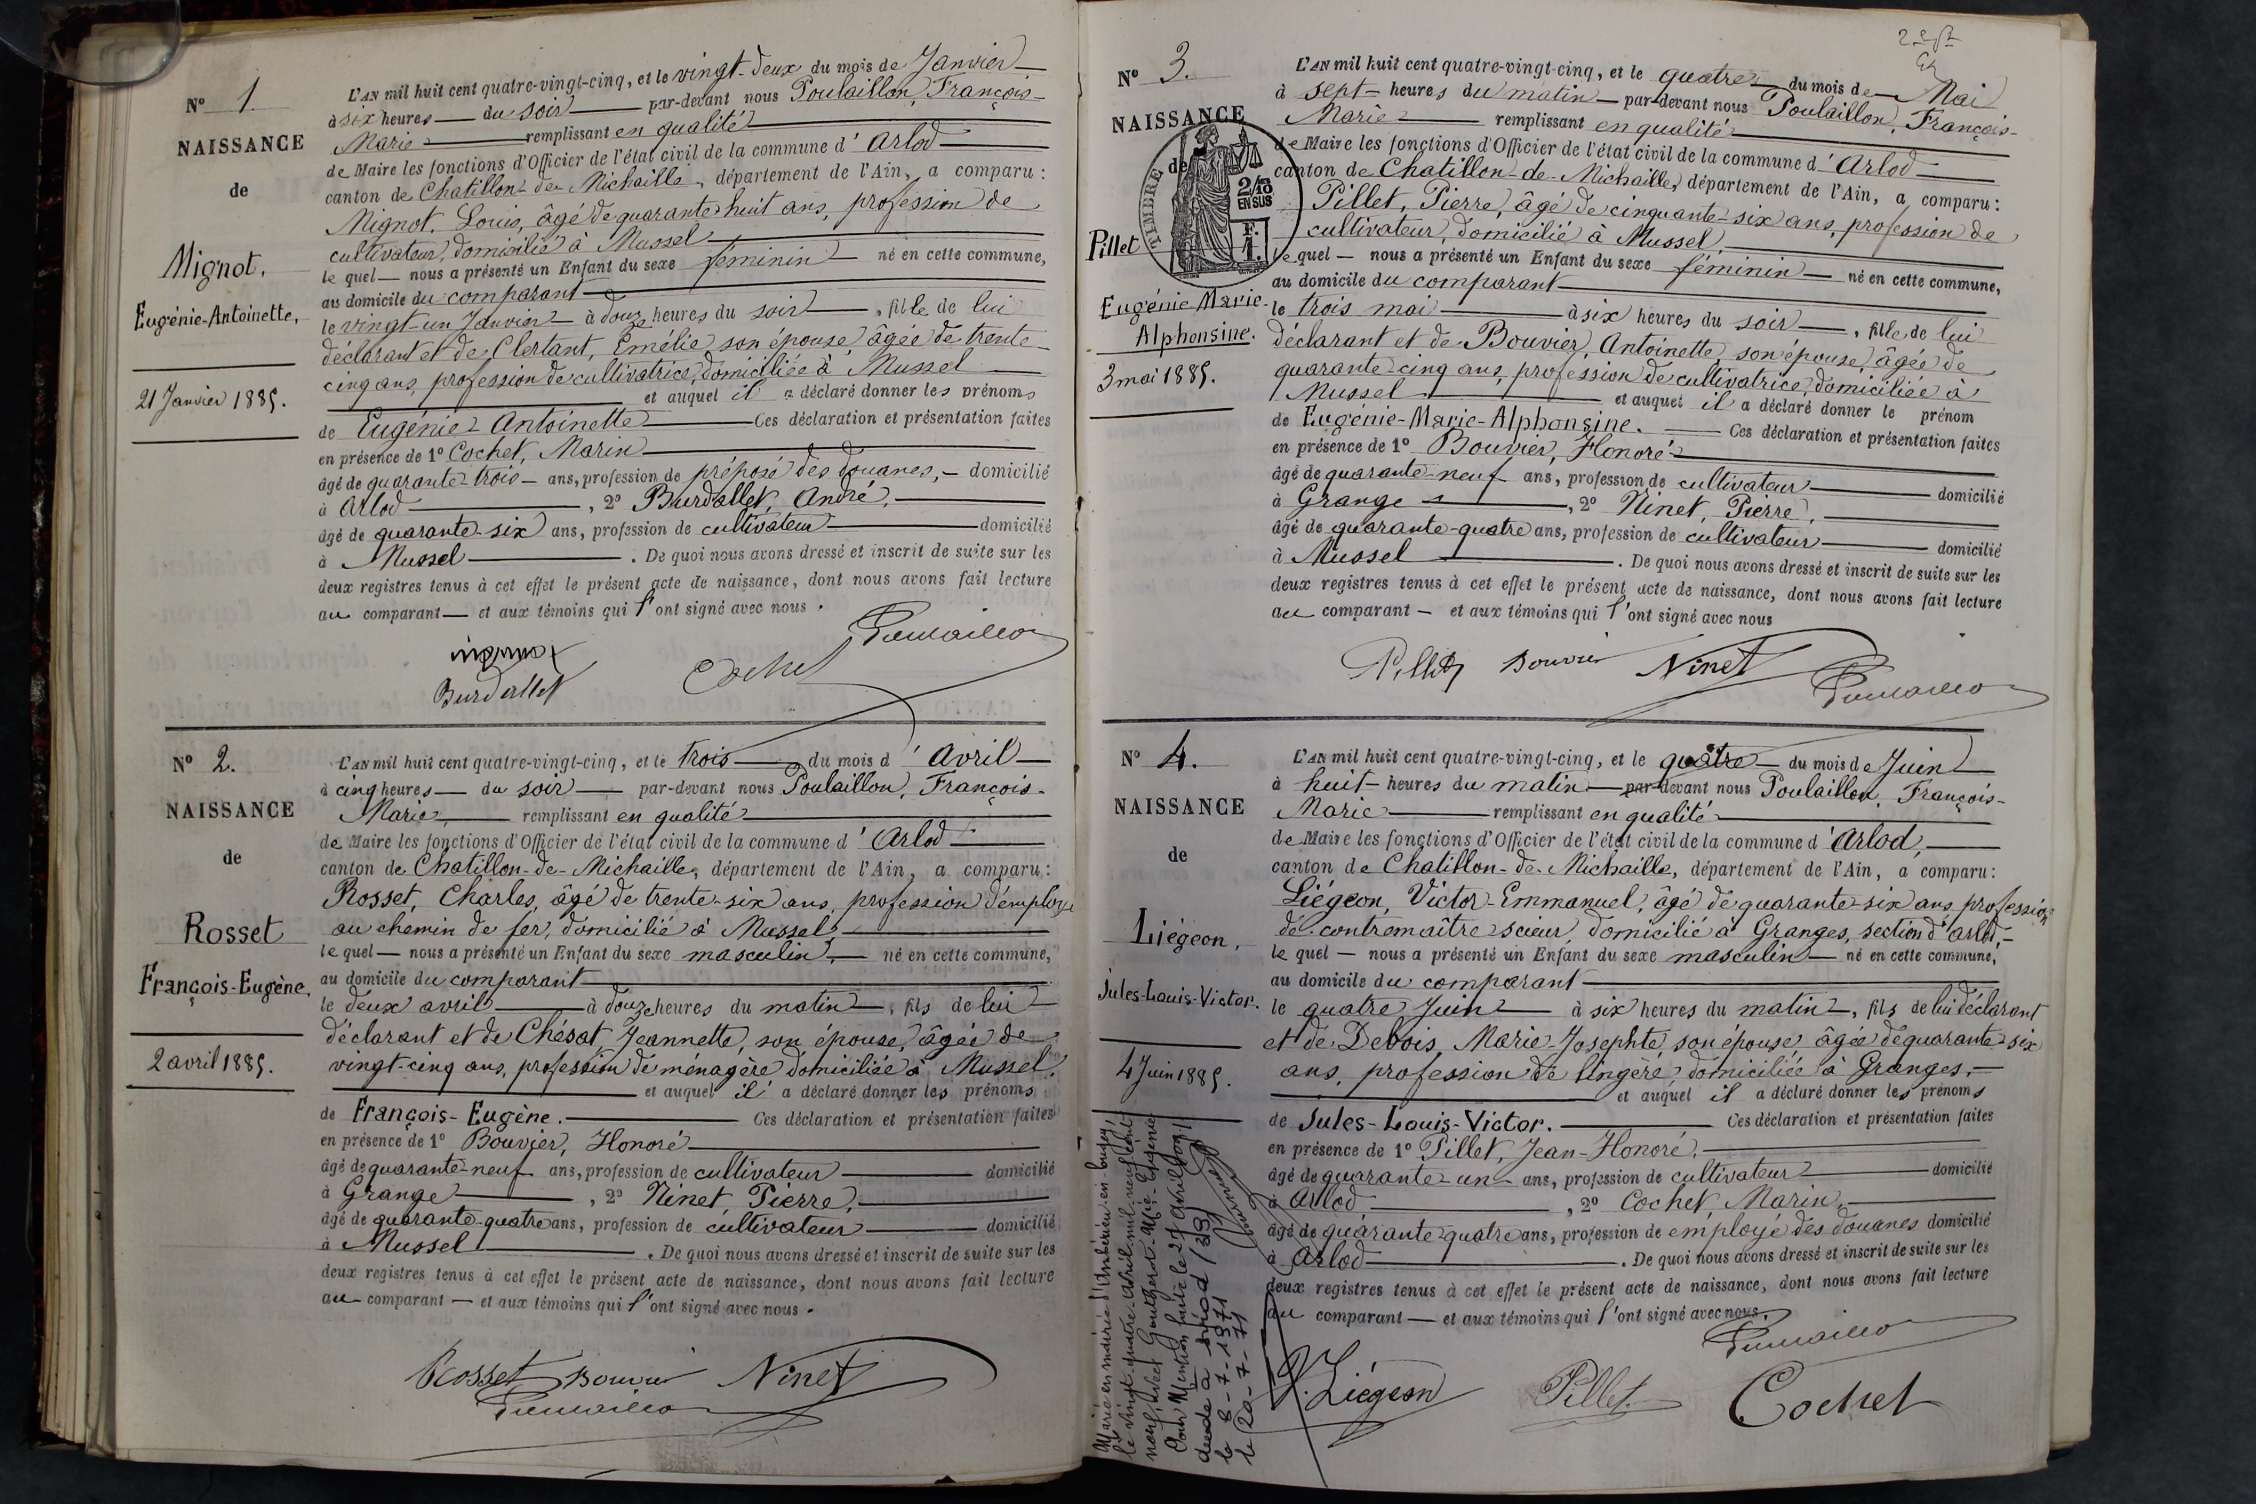 N° 1.
NAISSANCE
de
Mignot,
Eugénie-Antoinette,
21 Janvier 1885.
L'AN mil huit cent quatre-vingt-cinq, et le vingt-deux du mois de Janvier
à six heures du soir par-devant nous Poulaillon, François-
Marie remplissant en qualité
de Maire les fonctions d'Officier de l'état civil de la commune d'Arlod
canton de Chatillon-de-Michaille, département de l'Ain, a comparu :
Mignot, Louis, âgé de quarante-huit ans, profession de
cultivateur, domicilié à Mussel
lequel nous a présenté un Enfant du sexe féminin né en cette commune,
au domicile du comparant
le vingt-un Janvier à douze heures du soir, fille de lui
déclarant et de Clertant, Emélie son épouse, âgée de trente-
cinq ans, profession de cultivatrice, domiciliée à Mussel
et auquel il a déclaré donner les prénoms
de Eugénie Antoinette Ces déclaration et présentation faites
en présence de 1° Cochet, Marin
âgé de quarante-trois ans, profession de préposé des douanes, domicilié
à Arlod, 2° Burdallet, André,
âgé de quarante-six ans, profession de cultivateur domicilié
à Mussel. De quoi nous avons dressé et inscrit de suite sur les
deux registres tenus à cet effet le présent acte de naissance, dont nous avons fait lecture
au comparant et aux témoins qui l'ont signé avec nous.
Poulaillon
Burdallet Cochet
N° 2.
NAISSANCE
de
Rosset
François-Eugène,
2 avril 1885.
L'AN mil huit cent quatre-vingt-cinq, et le trois du mois d'Avril
à cinq heures du soir par-devant nous Poulaillon, François-
Marie, remplissant en qualité
de Maire les fonctions d'Officier de l'état civil de la commune d'Arlod
canton de Chatillon-de-Michaille, département de l'Ain, a comparu :
Rosset, Charles, âgé de trente-six ans, profession d'employé
au chemin de fer, domicilié à Mussel,
lequel nous a présenté un Enfant du sexe masculin, né en cette commune,
au domicile du comparant
le deux avril à douze heures du matin, fils de lui
déclarant et de Chésat, Jeannette, son épouse, âgée de
vingt-cinq ans, profession de ménagère domiciliée à Mussel.
et auquel il a déclaré donner les prénoms
de François-Eugène. Ces déclaration et présentation faites
en présence de 1° Bouvier, Honoré
âgé de quarante-neuf ans, profession de cultivateur domicilié
à Grange, 2° Ninet, Pierre,
âgé de quarante-quatre ans, profession de cultivateur domicilié
à Mussel. De quoi nous avons dressé et inscrit de suite sur les
deux registres tenus à cet effet le présent acte de naissance, dont nous avons fait lecture
au comparant et aux témoins qui l'ont signé avec nous.
Rosset Bouvier Ninet
Poulaillon
N° 3.
NAISSANCE
de
TIMBRE
2/10
EN SUS
F.
1.
Pillet
Eugénie-Marie-
Alphonsine.
3 mai 1885.
L'AN mil huit cent quatre-vingt-cinq, et le quatre du mois de Mai
à sept heures du matin par-devant nous Poulaillon, François-
Marie remplissant en qualité
de Maire les fonctions d'Officier de l'état civil de la commune d'Arlod
canton de Chatillon-de-Michaille, département de l'Ain, a comparu :
Pillet, Pierre, âgé de cinquante-six ans, profession de
cultivateur, domicilié à Mussel,
lequel nous a présenté un Enfant du sexe féminin né en cette commune,
au domicile du comparant
le trois mai à six heures du soir, fille de lui
déclarant et de Bouvier, Antoinette, son épouse, âgée de
quarante-cinq ans, profession de cultivatrice, domiciliée à
Mussel et auquel il a déclaré donner le prénom
de Eugénie-Marie-Alphonsine. Ces déclaration et présentation faites
en présence de 1° Bouvier, Honoré
âgé de quarante-neuf ans, profession de cultivateur domicilié
à Grange, 2° Ninet, Pierre,
âgé de quarante-quatre ans, profession de cultivateur domicilié
à Mussel. De quoi nous avons dressé et inscrit de suite sur les
deux registres tenus à cet effet le présent acte de naissance, dont nous avons fait lecture
au comparant et aux témoins qui l'ont signé avec nous
Pillet Bouvier Ninet
Poulaillon
N° 4.
NAISSANCE
de
Liégeon,
Jules-Louis-Victor.
4 Juin 1885.
L'AN mil huit cent quatre-vingt-cinq, et le quatre du mois de Juin
à huit heures du matin par-devant nous Poulaillon, François-
Marie remplissant en qualité
de Maire les fonctions d'Officier de l'état civil de la commune d'Arlod,
canton de Chatillon-de-Michaille, département de l'Ain, a comparu :
Liégeon, Victor-Emmanuel, âgé de quarante-six ans, profession
de contremaître scieur, domicilié à Granges, section d'Arlod,
lequel nous a présenté un Enfant du sexe masculin né en cette commune,
au domicile du comparant
le quatre Juin à six heures du matin, fils de lui déclarant
et de Debois, Marie-Josephte, son épouse âgée de quarante-six
ans, profession de lingère, domiciliée à Granges,
et auquel il a déclaré donner les prénoms
de Jules-Louis-Victor. Ces déclaration et présentation faites
en présence de 1° Pillet, Jean-Honoré,
âgé de quarante-un ans, profession de cultivateur domicilié
à Arlod, 2° Cochet, Marin,
âgé de quarante-quatre ans, profession de employé des douanes domicilié
à Arlod. De quoi nous avons dressé et inscrit de suite sur les
deux registres tenus à cet effet le présent acte de naissance, dont nous avons fait lecture
au comparant et aux témoins qui l'ont signé avec nous.
Poulaillon
V. Liégeon Pillet Cochet
Marié en mairie d'Ambérieu en bugey,
le vingt quatre Avril mil neuf cent
onze, avec
Pour Mention faite le 27 Avril 1911
décédé à
le 8-7-1971
le 20-7-71